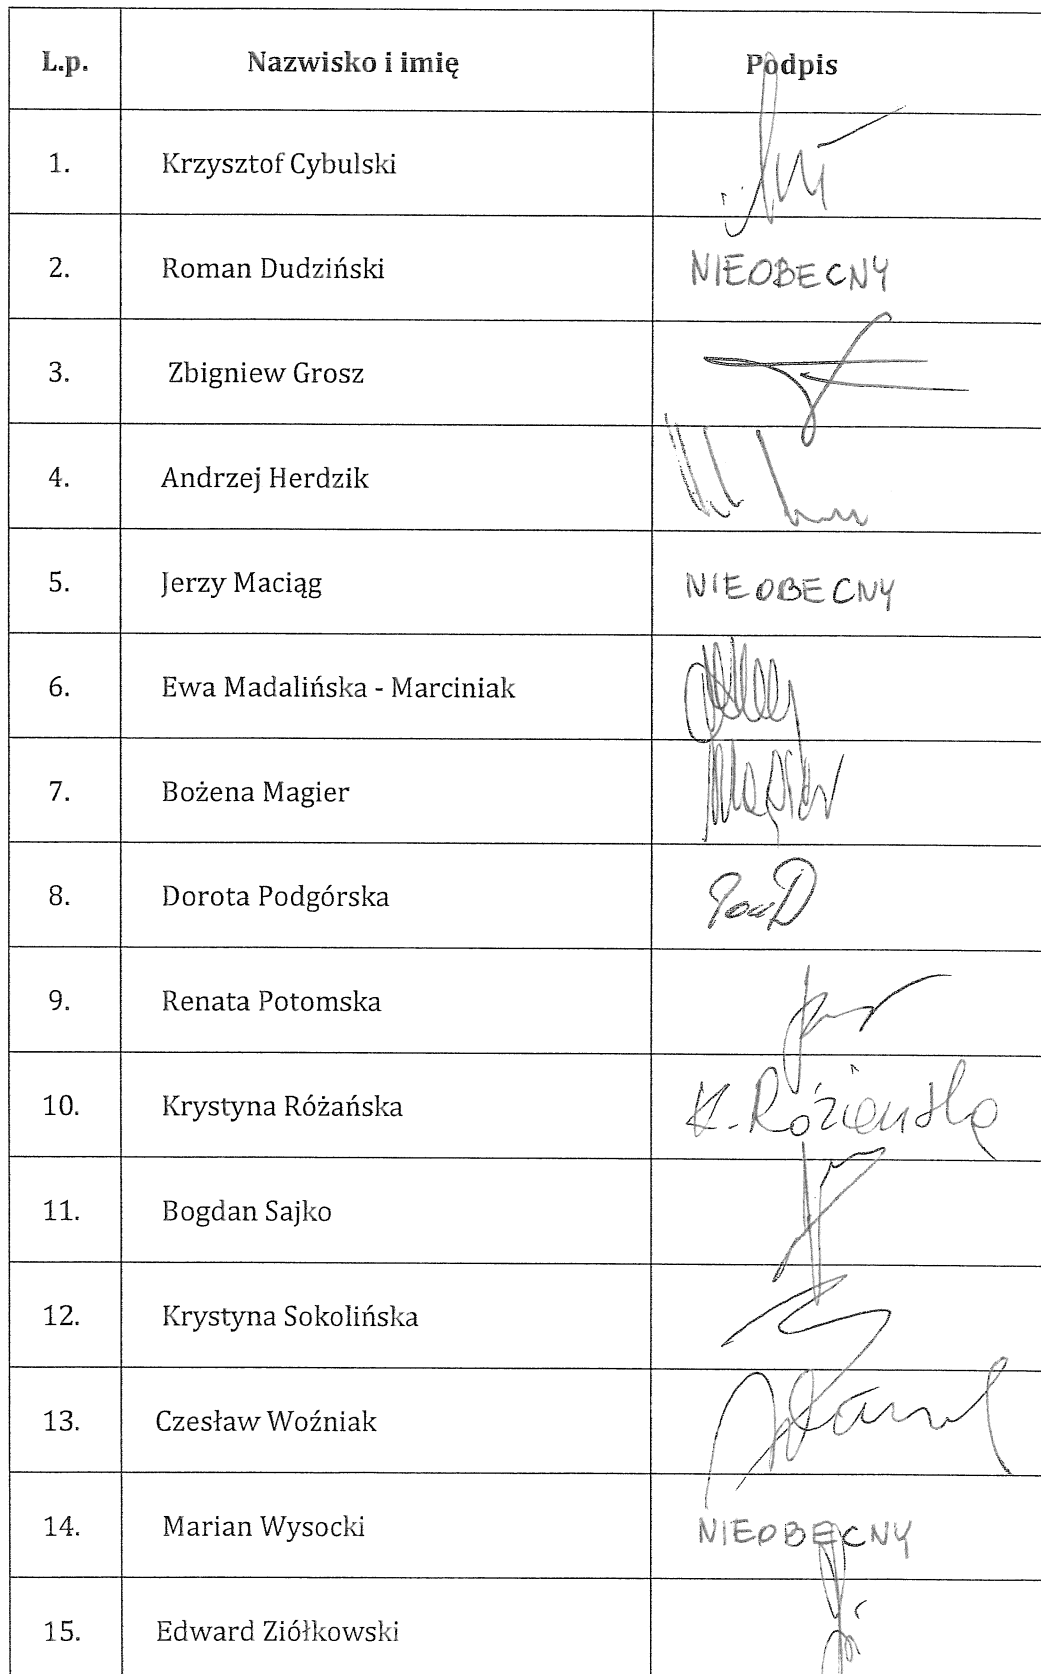 L.p. Nazwisko i imię Podpis
1. Krzysztof Cybulski
2. Roman Dudziński NIEOBECNY
3. Zbigniew Grosz
4. Andrzej Herdzik
5. Jerzy Maciąg NIEOBECNY
6. Ewa Madalińska - Marciniak
7. Bożena Magier Magier
8. Dorota Podgórska
9. Renata Potomska
10. Krystyna Różańska K. Różańska
11. Bogdan Sajko
12. Krystyna Sokolińska
13. Czesław Woźniak
14. Marian Wysocki NIEOBECNY
15. Edward Ziółkowski